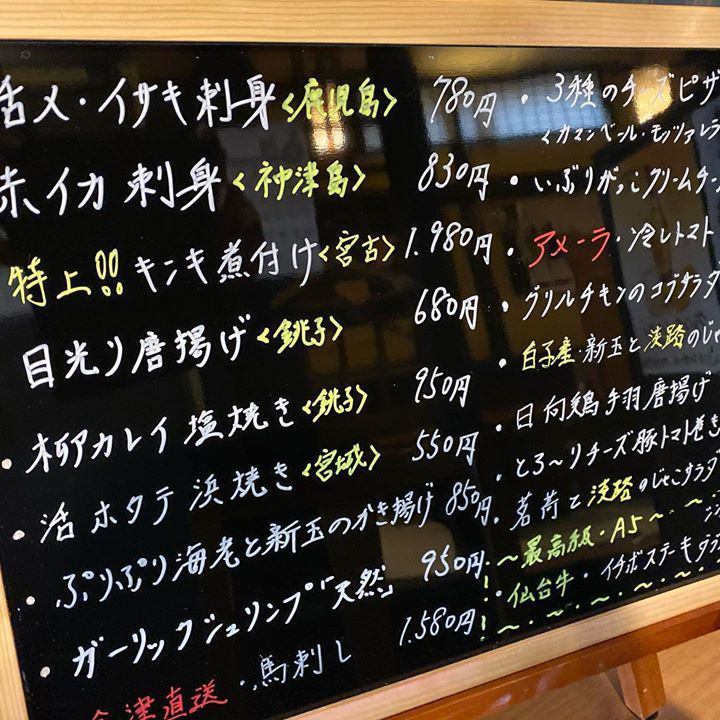 活〆・イサキ刺身<鹿児島> 780円
赤イカ刺身<神津島> 830円
特上!!キンキ煮付け<宮古> 1.980円
目光り唐揚げ<銚子> 680円
・柳カレイ塩焼き<銚子> 950円
・活ホタテ浜焼き<宮城> 550円
・ぷりぷり海老と新玉のかき揚げ 850円
・ガーリックシュリンプ「天然」 950円
会津直送・馬刺し 1.580円
・3種のチーズピザ
<カマンベール・モッツァレラ
・いぶりがっこクリームチー
・アメーラ・冷しトマト
・グリルチキンのコブサラダ
・白子産・新玉と淡路のじゃ
・日向鶏手羽唐揚げ
・とろ〜りチーズ豚トマト巻き
・茗荷と淡路のじゃこサラダ
〜最高級・A5〜
仙台牛・イチボステーキ